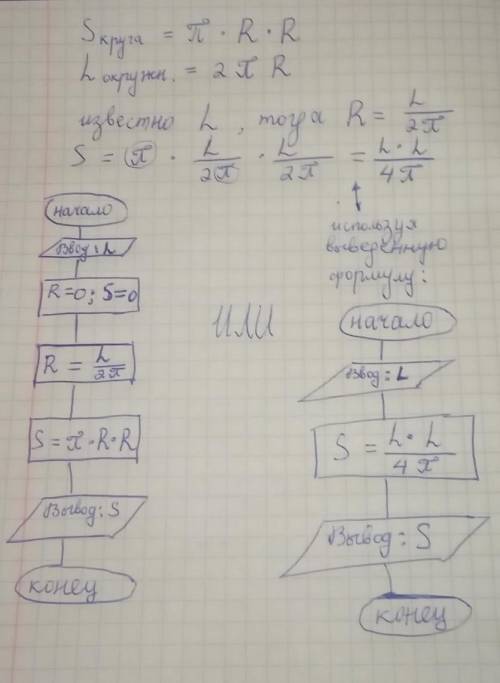 S круга = π · R · R
L окружн. = 2π R
известно L, тогда R = L/2π
S = π · L/2π · L/2π = L·L/4π
используя
выведенную
формулу:
начало
Ввод: L
R=0; S=0
R = L/2π
S = π·R·R
Вывод: S
конец
ИЛИ
начало
Ввод: L
S = L·L/4π
Вывод: S
конец